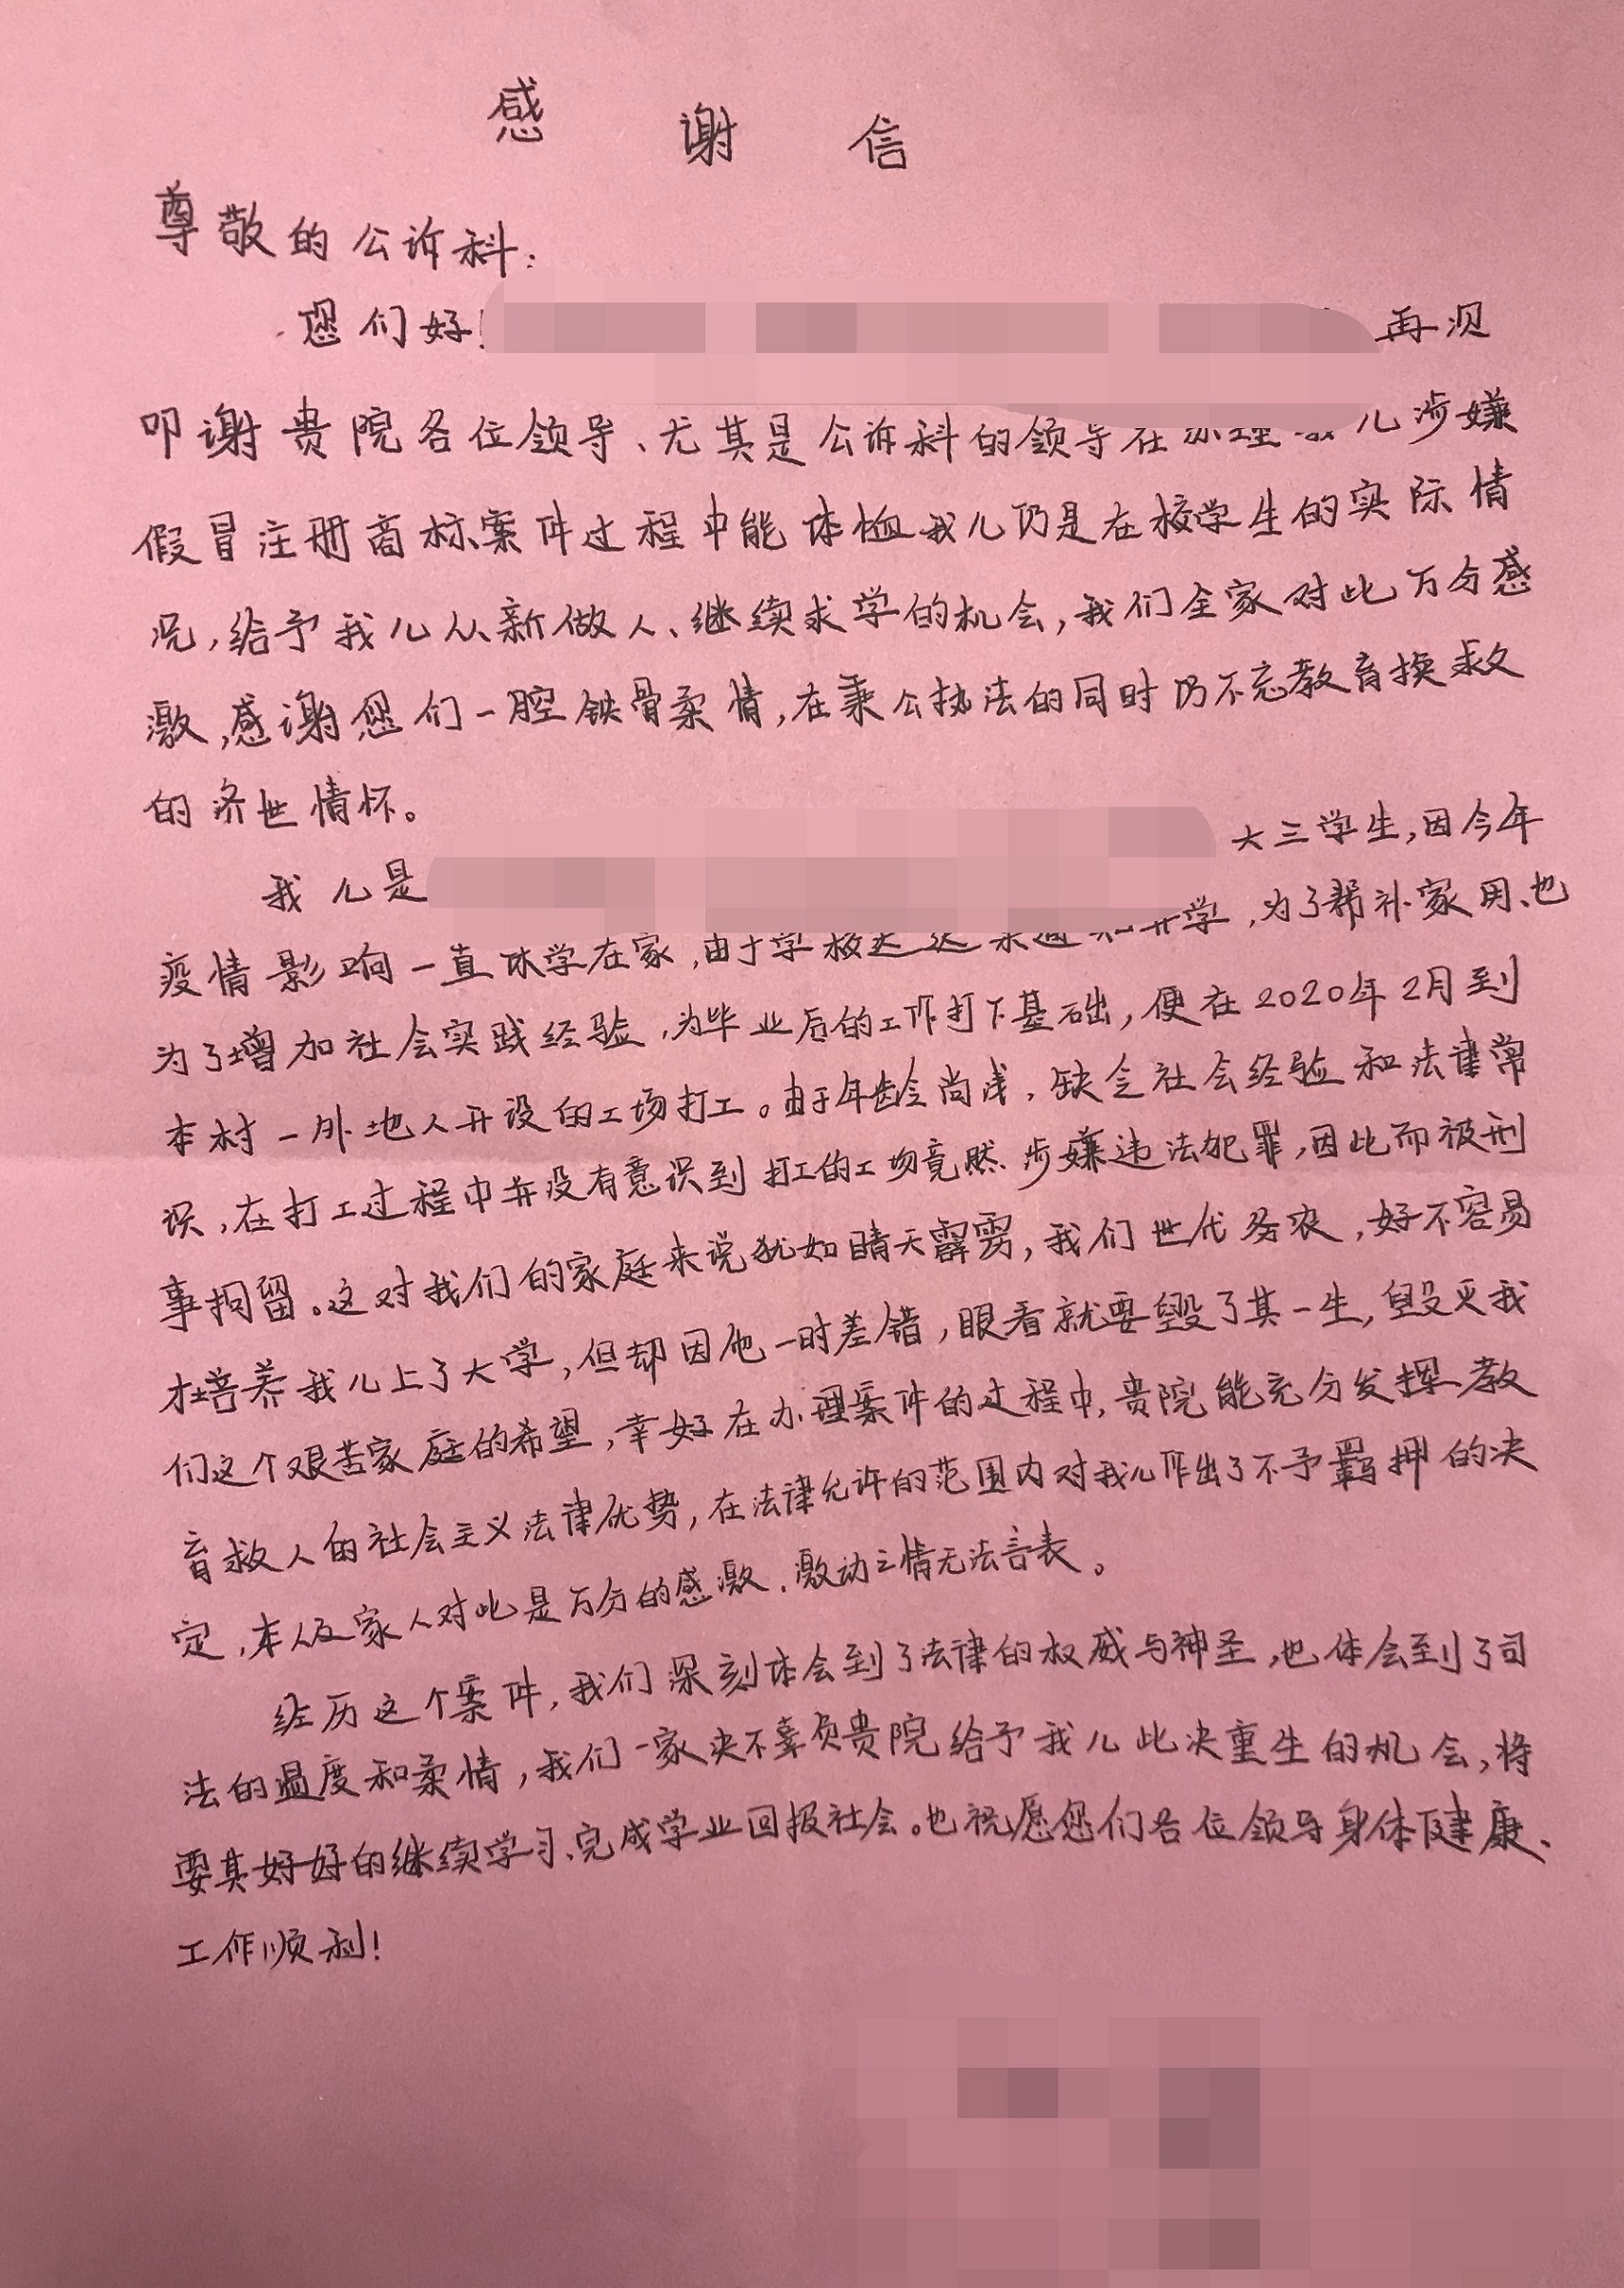 感谢信
尊敬的公诉科:
您们好! 再次
叩谢贵院各位领导、尤其是公诉科的领导在办理 儿涉嫌
假冒注册商标案件过程中能体恤我儿仍是在校学生的实际情
况,给予我儿从新做人、继续求学的机会,我们全家对此万分感
激,感谢您们一腔铁骨柔情,在秉公执法的同时仍不忘教育换救
的济世情怀。
我儿是 大三学生,因今年
疫情影响一直休学在家,由于学校迟迟未通知开学,为了帮补家用、也
为了增加社会实践经验,为毕业后的工作打下基础,便在2020年2月到
本村一外地人开设的工场打工。由于年龄尚浅,缺乏社会经验和法律常
识,在打工过程中并没有意识到打工的工场竟然涉嫌违法犯罪,因此而被刑
事拘留。这对我们的家庭来说犹如晴天霹雳,我们世代务农,好不容易
才培养我儿上了大学,但却因他一时差错,眼看就要毁了其一生,毁灭我
们这个艰苦家庭的希望,幸好在办理案件的过程中,贵院能充分发挥教
育救人的社会主义法律优势,在法律允许的范围内对我儿作出了不予羁押的决
定,本人及家人对此是万分的感激,激动之情无法言表。
经历这个案件,我们深刻体会到了法律的权威与神圣,也体会到了司
法的温度和柔情,我们一家决不辜负贵院给予我儿此次重生的机会,将
要其好好的继续学习、完成学业回报社会。也祝愿您们各位领导身体健康、
工作顺利!